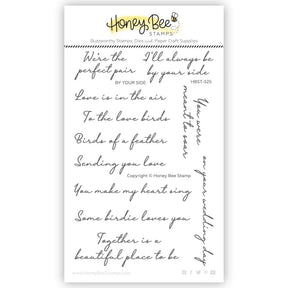 Honey Bee
STAMPS
Buzzworthy Stamps, Dies and Paper Craft Supplies
We're the
perfect pair
I'll always be
by your side
BY YOUR SIDE
HBST-525
Love is in the air
To the love birds
Birds of a feather
Sending you love
Copyright © Honey Bee Stamp
You make my heart sing
Some birdie loves you
Together is a
beautiful place to be
You were meant to soar
on your wedding day
www.honeybeestamps.com